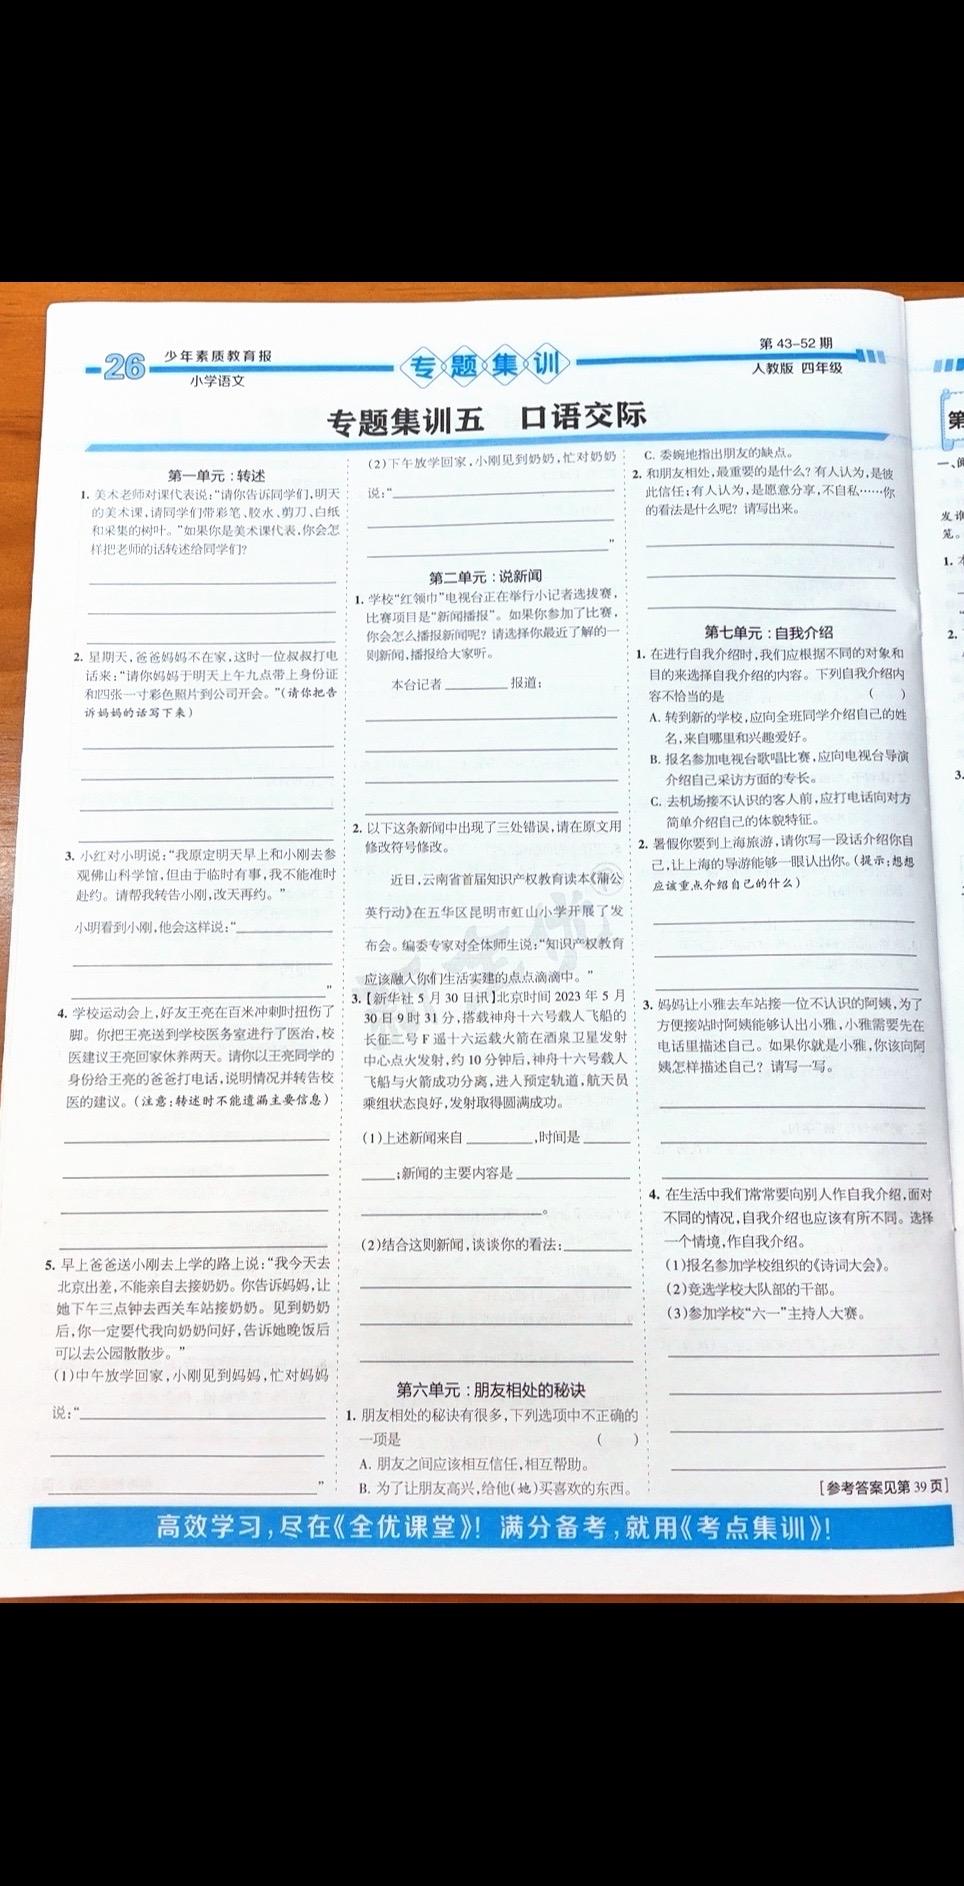 26
少年素质教育报
小学语文
专题集训
第 43-52 期
人教版 四年级
专题集训五 口语交际
第一单元：转述
1. 美术老师对课代表说：“请你告诉同学们，明天
的美术课，请同学们带彩笔、胶水、剪刀、白纸
和采集的树叶。”如果你是美术课代表，你会怎
样把老师的话转述给同学们？
2. 星期天，爸爸妈妈不在家，这时一位叔叔打电
话来：“请你妈妈于明天上午九点带上身份证
和四张一寸彩色照片到公司开会。”（请你把告
诉妈妈的话写下来）
3. 小红对小明说：“我原定明天早上和小刚去参
观佛山科学馆，但由于临时有事，我不能准时
赴约。请帮我转告小刚，改天再约。”
小明看到小刚，他会这样说：“
”
4. 学校运动会上，好友王亮在百米冲刺时扭伤了
脚。你把王亮送到学校医务室进行了医治，校
医建议王亮回家休养两天。请你以王亮同学的
身份给王亮的爸爸打电话，说明情况并转告校
医的建议。（注意：转述时不能遗漏主要信息）
5. 早上爸爸送小刚去上学的路上说：“我今天去
北京出差，不能亲自去接奶奶。你告诉妈妈，让
她下午三点钟去西关车站接奶奶。见到奶奶
后，你一定要代我向奶奶问好，告诉她晚饭后
可以去公园散散步。”
(1)中午放学回家，小刚见到妈妈，忙对妈妈
说：“
”
(2)下午放学回家，小刚见到奶奶，忙对奶奶
说：“
”
第二单元：说新闻
1. 学校“红领巾”电视台正在举行小记者选拔赛，
比赛项目是“新闻播报”。如果你参加了比赛，
你会怎么播报新闻呢？请选择你最近了解的一
则新闻，播报给大家听。
本台记者 报道：
2. 以下这条新闻中出现了三处错误，请在原文用
修改符号修改。
近日，云南省首届知识产权教育读本《蒲公
英行动》在五华区昆明市虹山小学开展了发
布会。编委专家对全体师生说：“知识产权教育
应该融人你们生活实建的点点滴滴中。”
3.【新华社 5 月 30 日讯】北京时间 2023 年 5 月
30 日 9 时 31 分，搭载神舟十六号载人飞船的
长征二号 F 遥十六运载火箭在酒泉卫星发射
中心点火发射，约 10 分钟后，神舟十六号载人
飞船与火箭成功分离，进入预定轨道，航天员
乘组状态良好，发射取得圆满成功。
(1)上述新闻来自 ，时间是
；新闻的主要内容是
。
(2)结合这则新闻，谈谈你的看法：
第六单元：朋友相处的秘诀
1. 朋友相处的秘诀有很多，下列选项中不正确的
一项是 （ ）
A. 朋友之间应该相互信任，相互帮助。
B. 为了让朋友高兴，给他(她)买喜欢的东西。
C. 委婉地指出朋友的缺点。
2. 和朋友相处，最重要的是什么？有人认为，是彼
此信任；有人认为，是愿意分享，不自私……你
的看法是什么呢？请写出来。
第七单元：自我介绍
1. 在进行自我介绍时，我们应根据不同的对象和
目的来选择自我介绍的内容。下列自我介绍内
容不恰当的是 （ ）
A. 转到新的学校，应向全班同学介绍自己的姓
名，来自哪里和兴趣爱好。
B. 报名参加电视台歌唱比赛，应向电视台导演
介绍自己采访方面的专长。
C. 去机场接不认识的客人前，应打电话向对方
简单介绍自己的体貌特征。
2. 暑假你要到上海旅游，请你写一段话介绍你自
己，让上海的导游能够一眼认出你。（提示：想想
应该重点介绍自己的什么）
3. 妈妈让小雅去车站接一位不认识的阿姨，为了
方便接站时阿姨能够认出小雅，小雅需要先在
电话里描述自己。如果你就是小雅，你该向阿
姨怎样描述自己？请写一写。
4. 在生活中我们常常要向别人作自我介绍，面对
不同的情况，自我介绍也应该有所不同。选择
一个情境，作自我介绍。
(1)报名参加学校组织的《诗词大会》。
(2)竞选学校大队部的干部。
(3)参加学校“六一”主持人大赛。
[参考答案见第 39 页]
高效学习，尽在《全优课堂》！ 满分备考，就用《考点集训》！
第
一、
发
笔。
1.
2.
3.